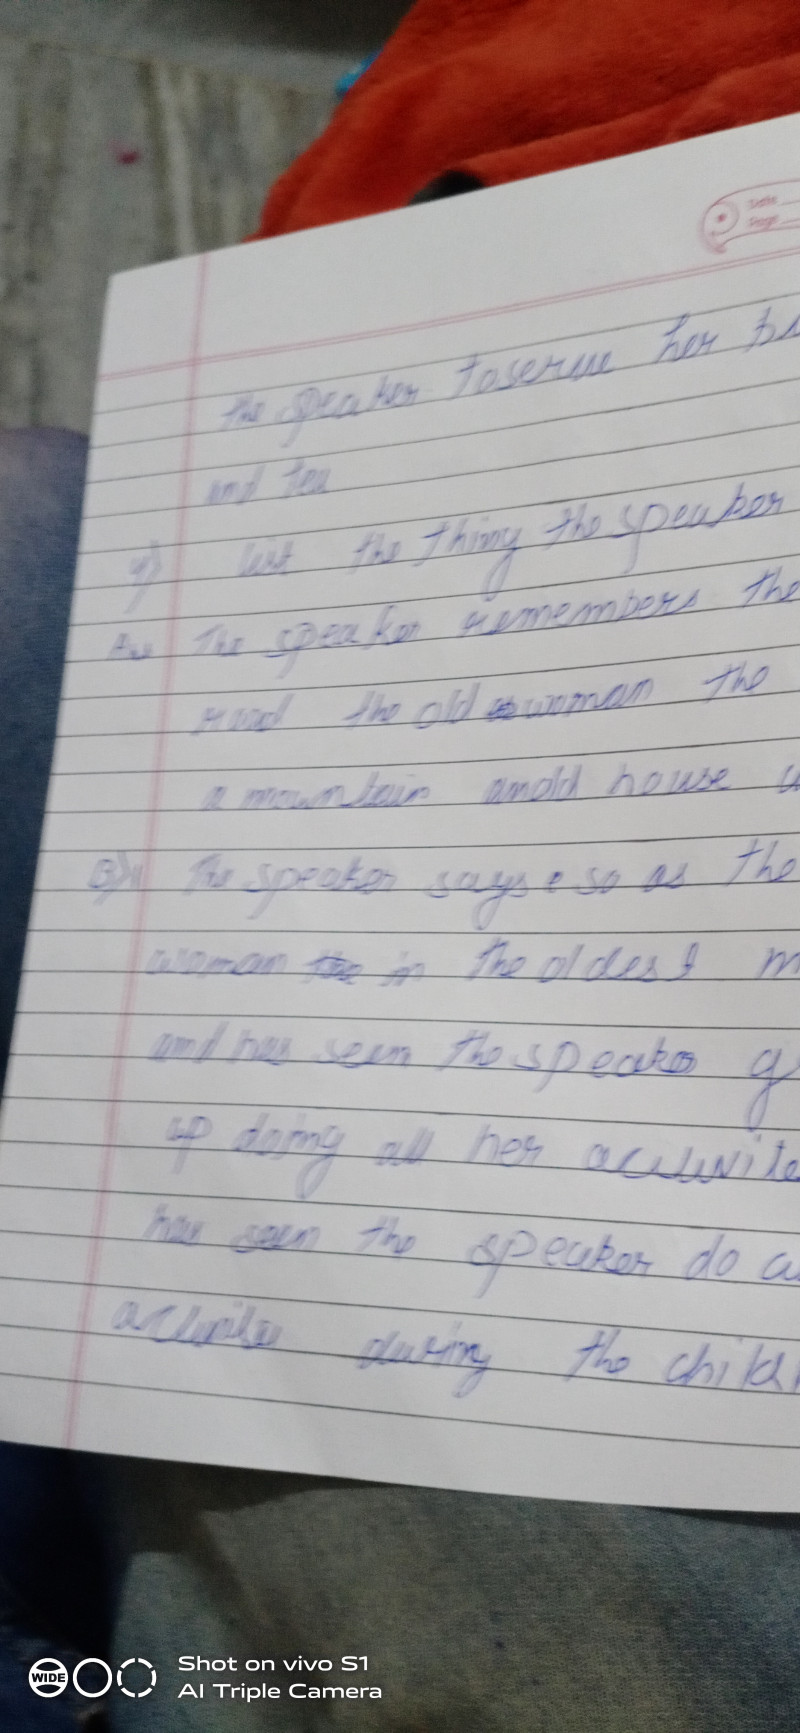 Date
Page
the speaker toserve her
and tea
4) list the thing the speaker
Ans The speaker remembers the
road the old woman the
a mountain anold house
B) The speaker says so as the
woman in the oldest
and has seen the speaker
up doing all her
has seen the speaker do
during the
WIDE
Shot on vivo S1
AI Triple Camera